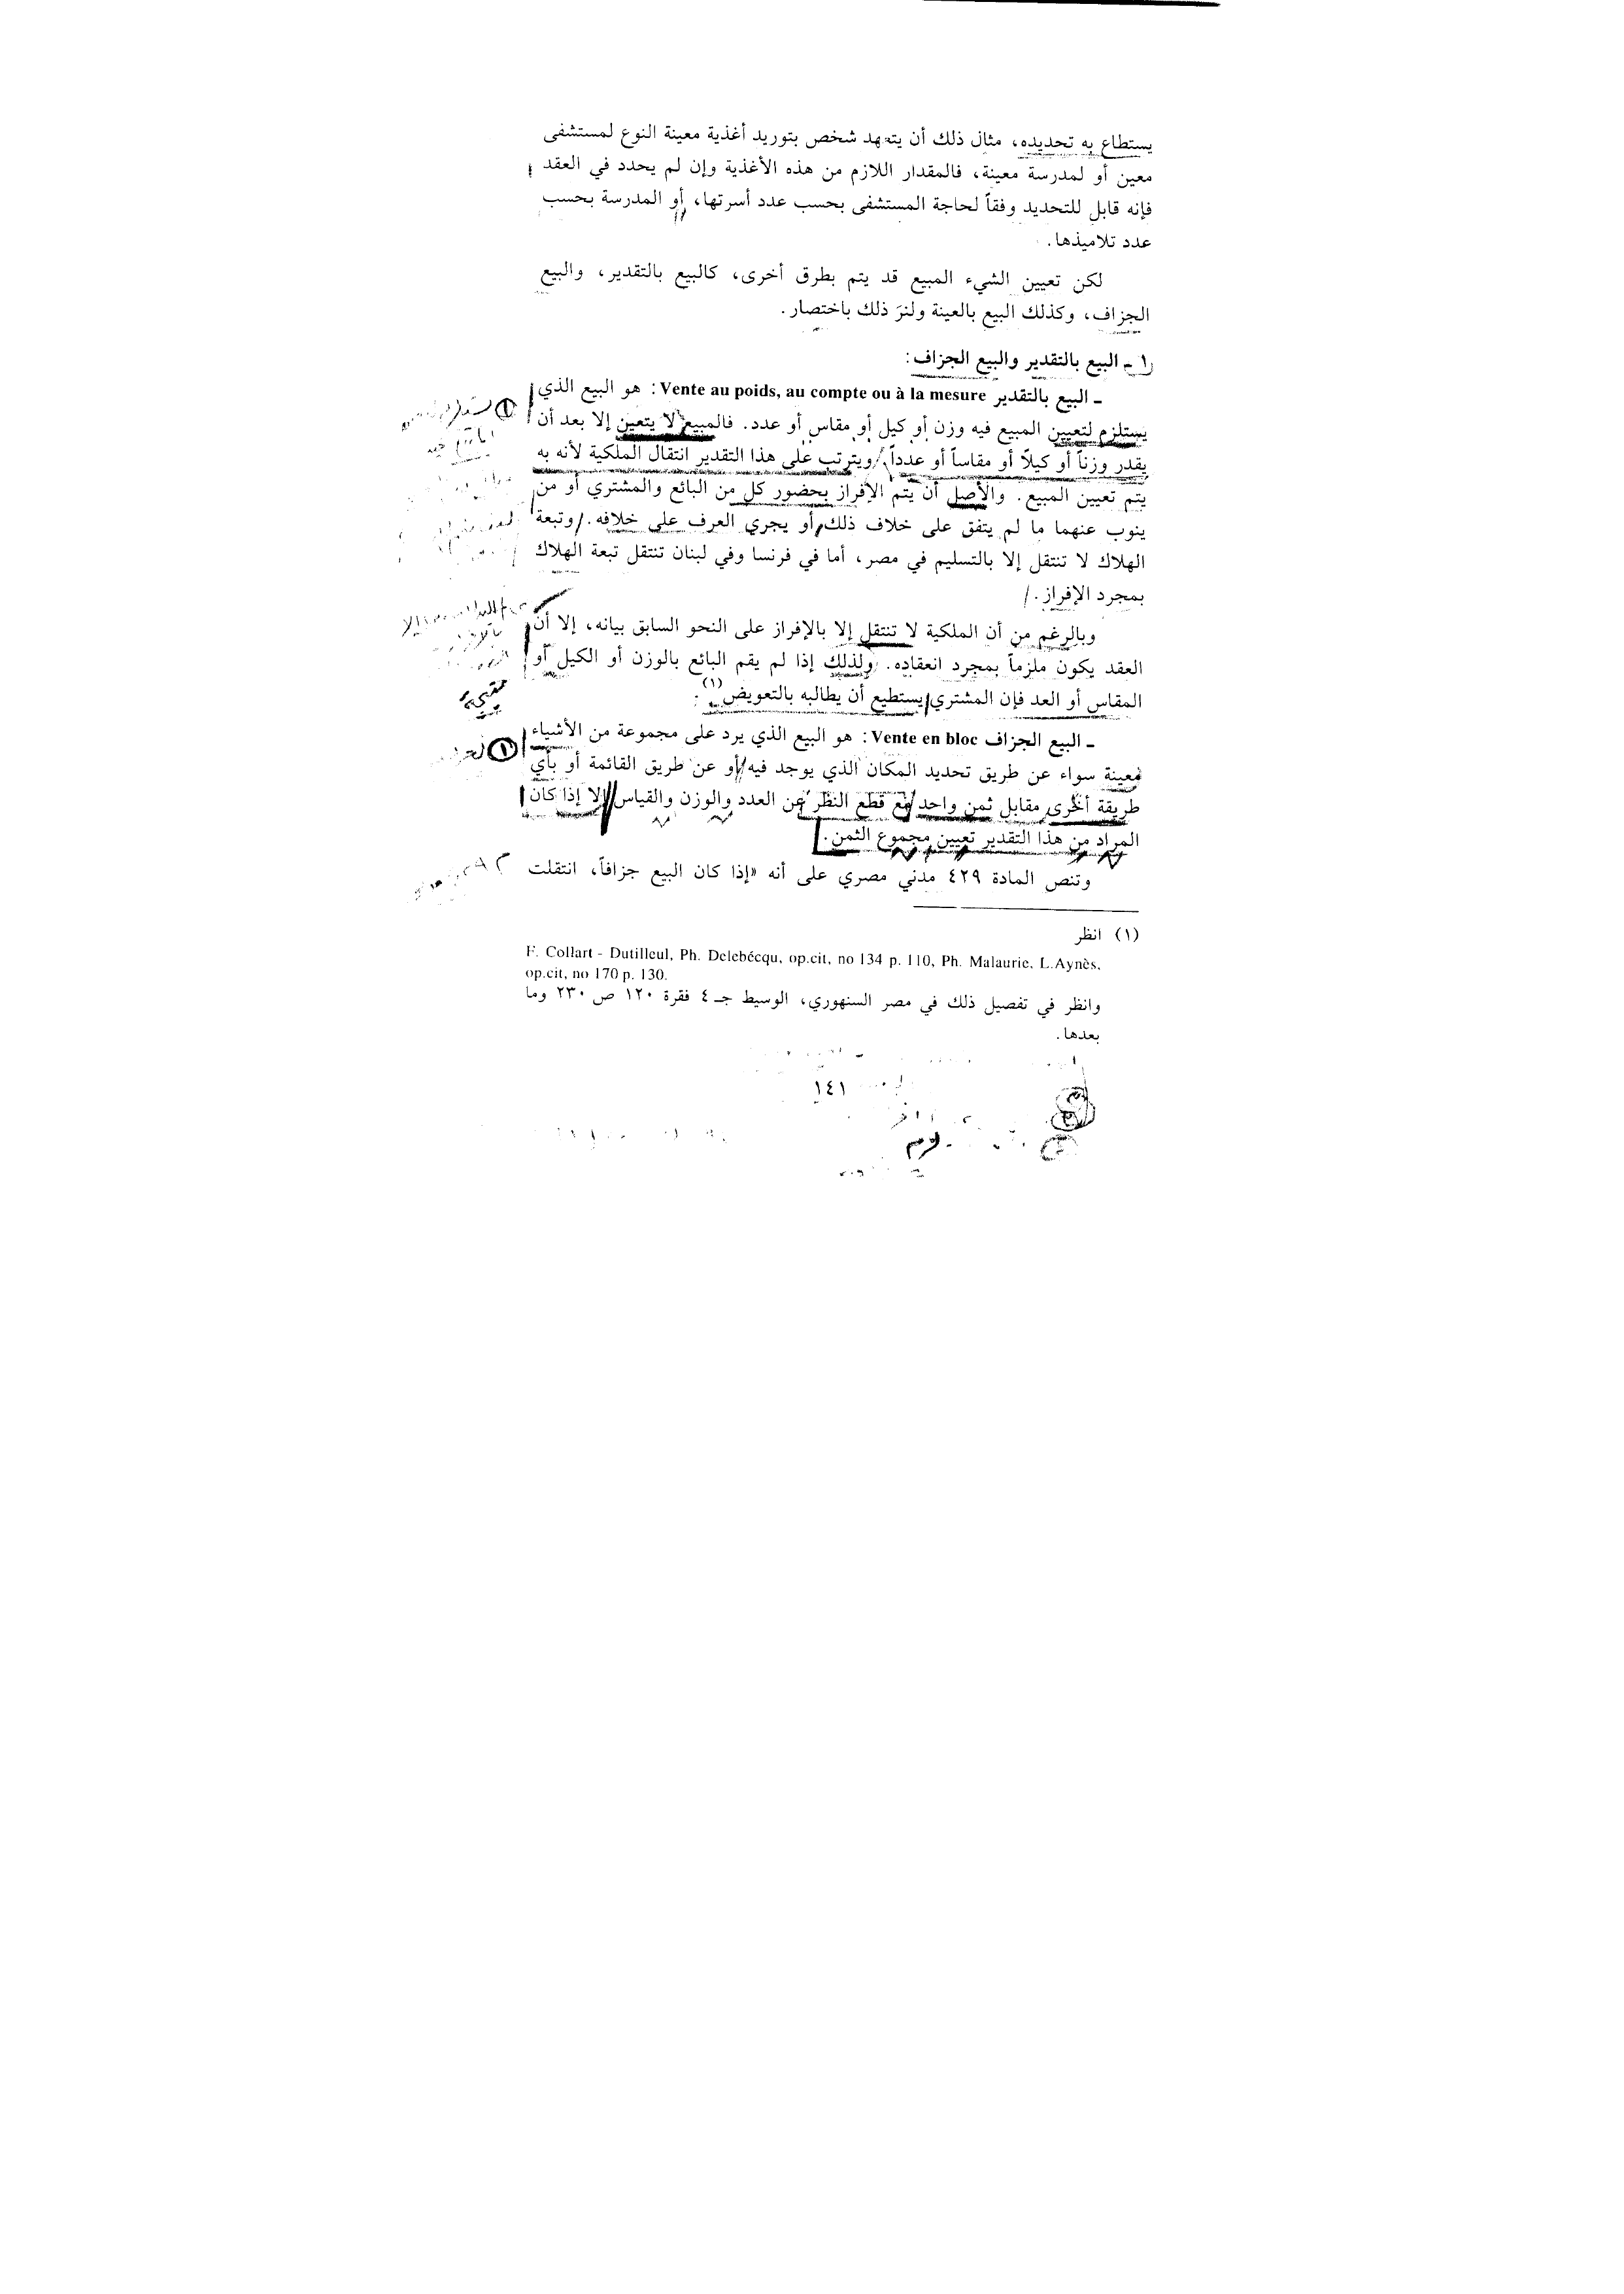 يستطاع به تحديده، مثال ذلك أن يتعهد شخص بتوريد أغذية معينة النوع لمستشفى
معين أو لمدرسة معينة، فالمقدار اللازم من هذه الأغذية وإن لم يحدد في العقد
فإنه قابل للتحديد وفقاً لحاجة المستشفى بحسب عدد أسرتها، أو المدرسة بحسب
عدد تلاميذها.
لكن تعيين الشيء المبيع قد يتم بطرق أخرى، كالبيع بالتقدير، والبيع
الجزاف، وكذلك البيع بالعينة ولنرَ ذلك باختصار.
١ - البيع بالتقدير والبيع الجزاف:
- البيع بالتقدير Vente au poids, au compte ou à la mesure: هو البيع الذي
يستلزم لتعيين المبيع فيه وزن أو كيل أو مقاس أو عدد. فالمبيع لا يتعين إلا بعد أن
يقدر وزناً أو كيلاً أو مقاساً أو عدداً، ويترتب على هذا التقدير انتقال الملكية لأنه به
يتم تعيين المبيع. والأصل أن يتم الإفراز بحضور كل من البائع والمشتري أو من
ينوب عنهما ما لم يتفق على خلاف ذلك أو يجري العرف على خلافه. وتبعة
الهلاك لا تنتقل إلا بالتسليم في مصر، أما في فرنسا وفي لبنان تنتقل تبعة الهلاك
بمجرد الإفراز.
وبالرغم من أن الملكية لا تنتقل إلا بالإفراز على النحو السابق بيانه، إلا أن
العقد يكون ملزماً بمجرد انعقاده. ولذلك إذا لم يقم البائع بالوزن أو الكيل أو
المقاس أو العد فإن المشتري يستطيع أن يطالبه بالتعويض(١).
- البيع الجزاف Vente en bloc: هو البيع الذي يرد على مجموعة من الأشياء
معينة سواء عن طريق تحديد المكان الذي يوجد فيه أو عن طريق القائمة أو بأي
طريقة أخرى مقابل ثمن واحد مع قطع النظر عن العدد والوزن والقياس إلا إذا كان
المراد من هذا التقدير تعيين مجموع الثمن.
وتنص المادة ٤٢٩ مدني مصري على أنه «إذا كان البيع جزافاً، انتقلت
(١) انظر
F. Collart - Dutilleul, Ph. Delebécqu, op.cit, no 134 p. 110, Ph. Malaurie, L.Aynès,
op.cit, no 170 p. 130.
وانظر في تفصيل ذلك في مصر السنهوري، الوسيط جـ ٤ فقرة ١٢٠ ص ٢٣٠ وما
بعدها.
١٤١